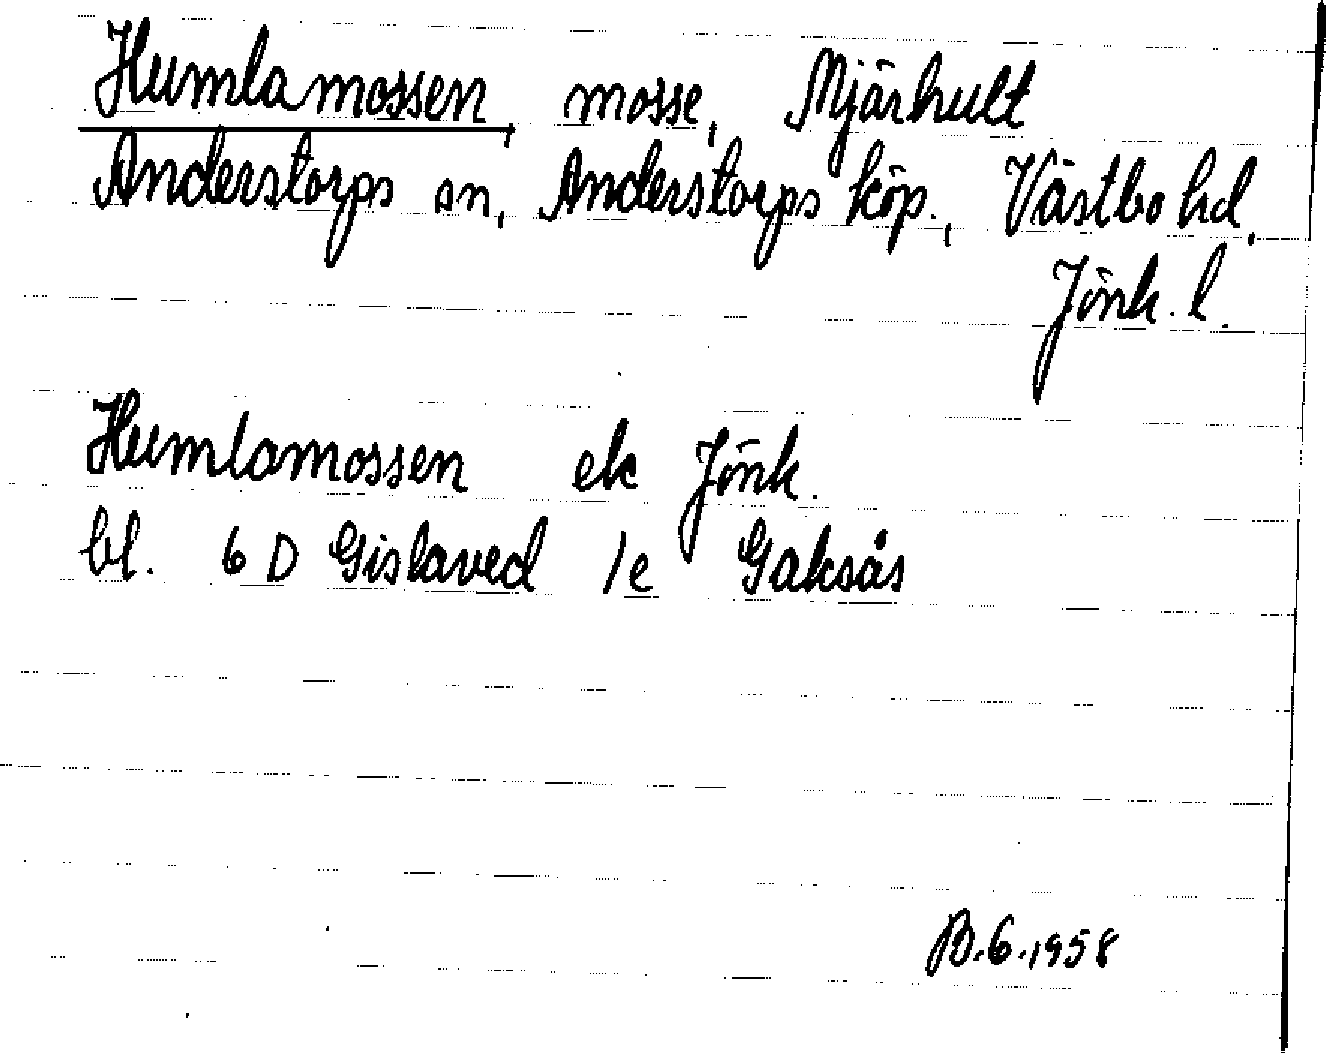 Humlamossen, mosse, Mjärhult
Anderstorps sn, Anderstorps köp., Västbo hd,
Jönk. l.
Humlamossen ek Jönk.
bl. 6 D Gislaved 1e Gaksås
B.6.1958